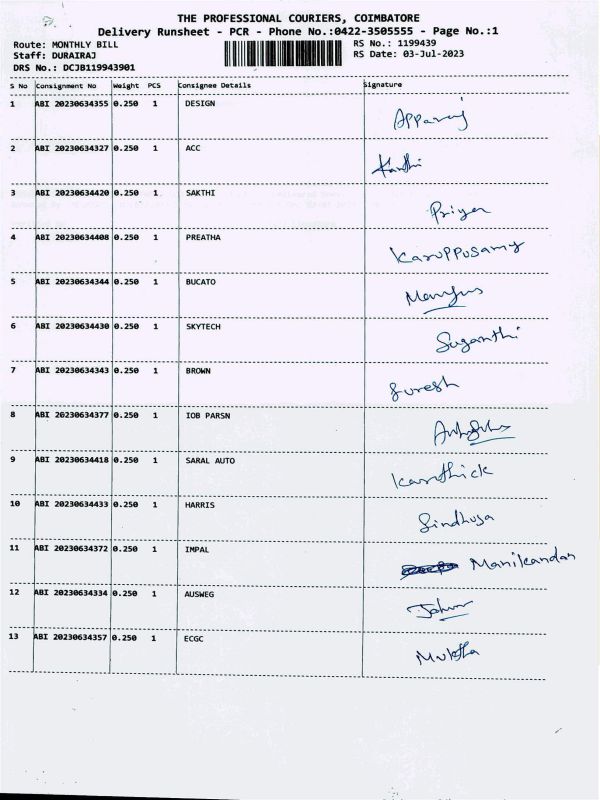 THE PROFESSIONAL COURIERS, COIMBATORE
Delivery Runsheet - PCR - Phone No.:0422-3505555 - Page No.:1
Route: MONTHLY BILL RS No.: 1199439
Staff: DURAIRAJ RS Date: 03-Jul-2023
DRS No.: DCJB119943901
S No Consignment No Weight PCS Consignee Details Signature
1 ABI 20230634355 0.250 1 DESIGN Apparaj
2 ABI 20230634327 0.250 1 ACC
3 ABI 20230634420 0.250 1 SAKTHI Priya
4 ABI 20230634408 0.250 1 PREATHA Karuppusamy
5 ABI 20230634344 0.250 1 BUCATO
6 ABI 20230634430 0.250 1 SKYTECH Suganthi
7 ABI 20230634343 0.250 1 BROWN Suresh
8 ABI 20230634377 0.250 1 IOB PARSN
9 ABI 20230634418 0.250 1 SARAL AUTO Karthick
10 ABI 20230634433 0.250 1 HARRIS Sindhuja
11 ABI 20230634372 0.250 1 IMPAL Manikandan
12 ABI 20230634334 0.250 1 AUSWEG
13 ABI 20230634357 0.250 1 ECGC